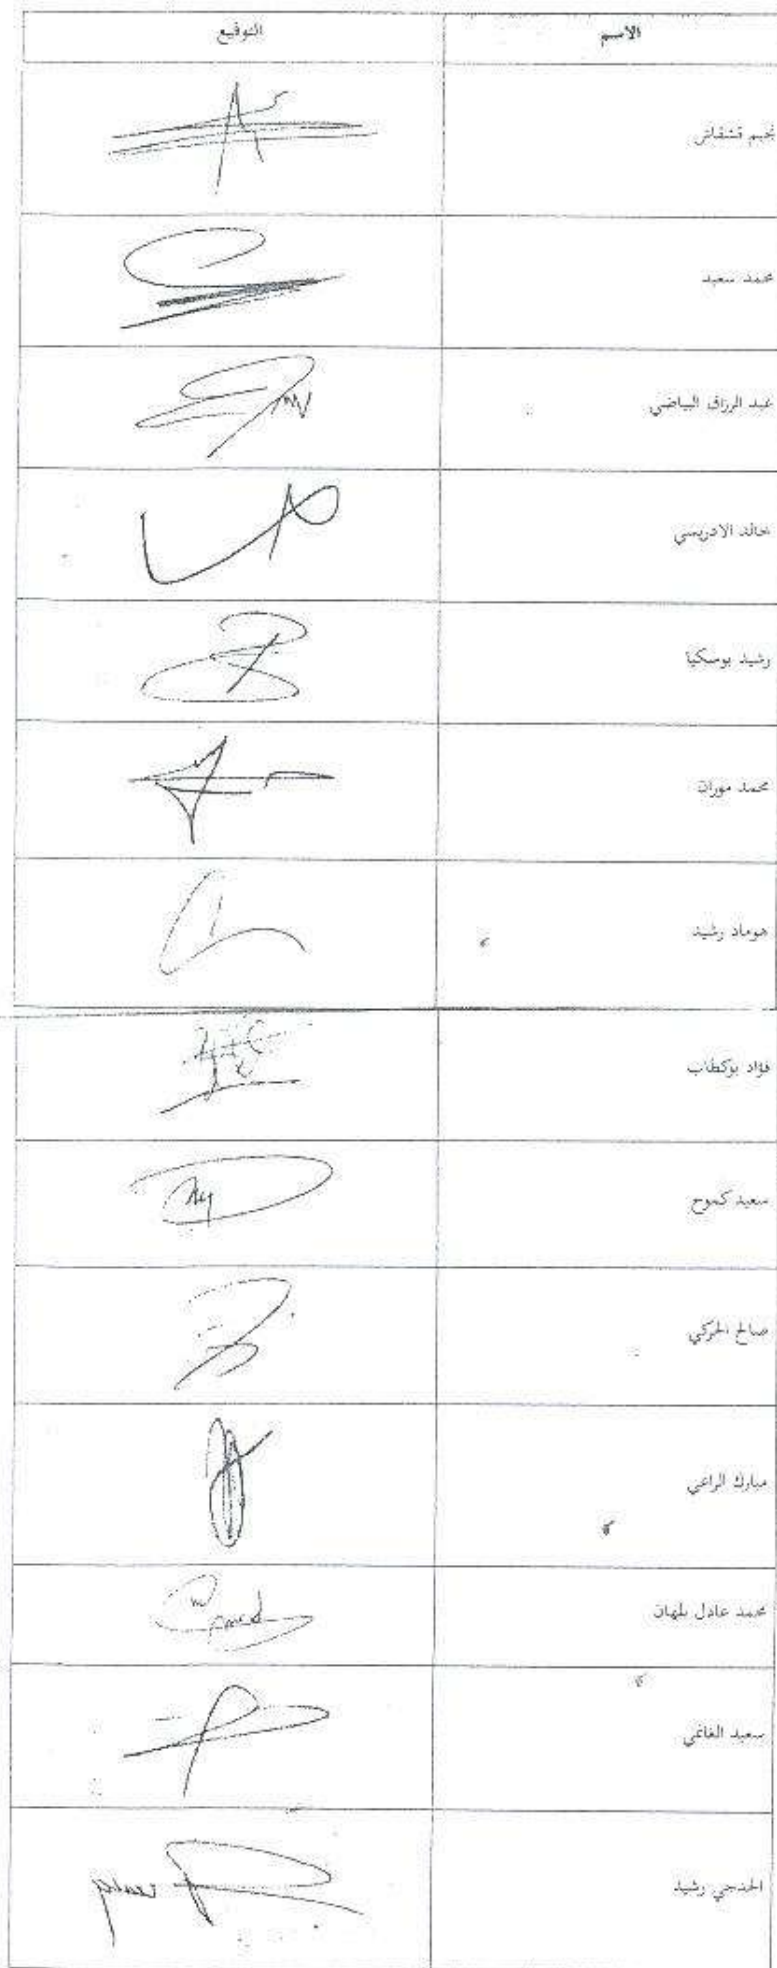 الاسم التوقيع
نجيم قشقاش
محمد سعيد
عبد الرزاق البياضي
خالد الادريسي
رشيد بوسكيا
محمد موران
هوماد رشيد
فؤاد بوكطاب
سعيد كموح
صالح الحركي
مبارك الراعي
محمد عادل بلهان
سعيد الغانمي
رشيد